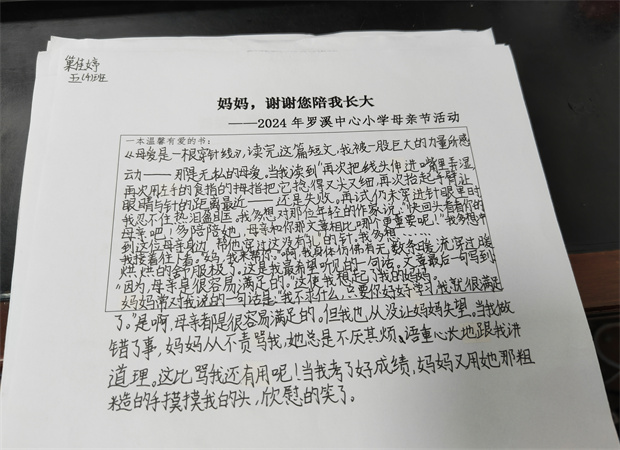 葉佳婷
五(4)班
妈妈，谢谢您陪我长大
——2024年罗溪中心小学母亲节活动
一本温馨有爱的书：
《母爱是一根穿针线》，读完这篇短文，我被一股巨大的力量所感
动——那是无私的母爱。当我读到"再次把线头伸进嘴里弄湿，
再次用左手的食指的拇指把它抢得又尖又细，再次抬起手臂让
眼睛与针的距离最近——还是失败。再试仍未穿进针眼里时
我忍不住热泪盈眶，我多想对那位年轻的作家说："快回头看看你的
母亲吧！多陪陪她，母亲和你那文章相比哪个更重要呢！"我多想
到这位母亲身边，帮他穿过这没有孔的针。我多想……
我接着往下看。"妈，我来帮你。"啊，我身体仿佛有无数条暖流穿过，暖
烘烘的舒服极了。这是我最希望听见的一句话。文章最后一句写到
"因为，母亲是很容易满足的。"这使我想起了我的妈妈。
妈妈常对我说的一句话是"我不求什么，只要你好好学习，我就很满足
了。"是啊，母亲都是很容易满足的。但我也从没让妈妈失望。当我做
错了事，妈妈从不责骂我，她总是不厌其烦、语重心长地跟我讲
道理。这比骂我还有用呢！当我考了好成绩，妈妈又用她那粗
糙的手摸摸我的头，欣慰的笑了。